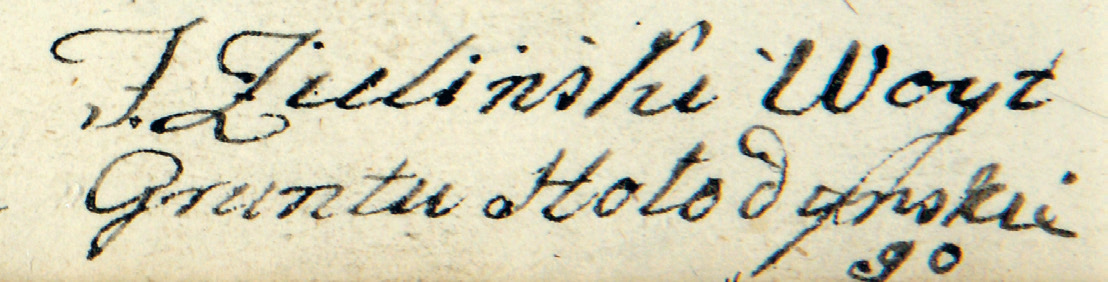 J. Zielinski Woyt
Gruntu Hołodynskie
go